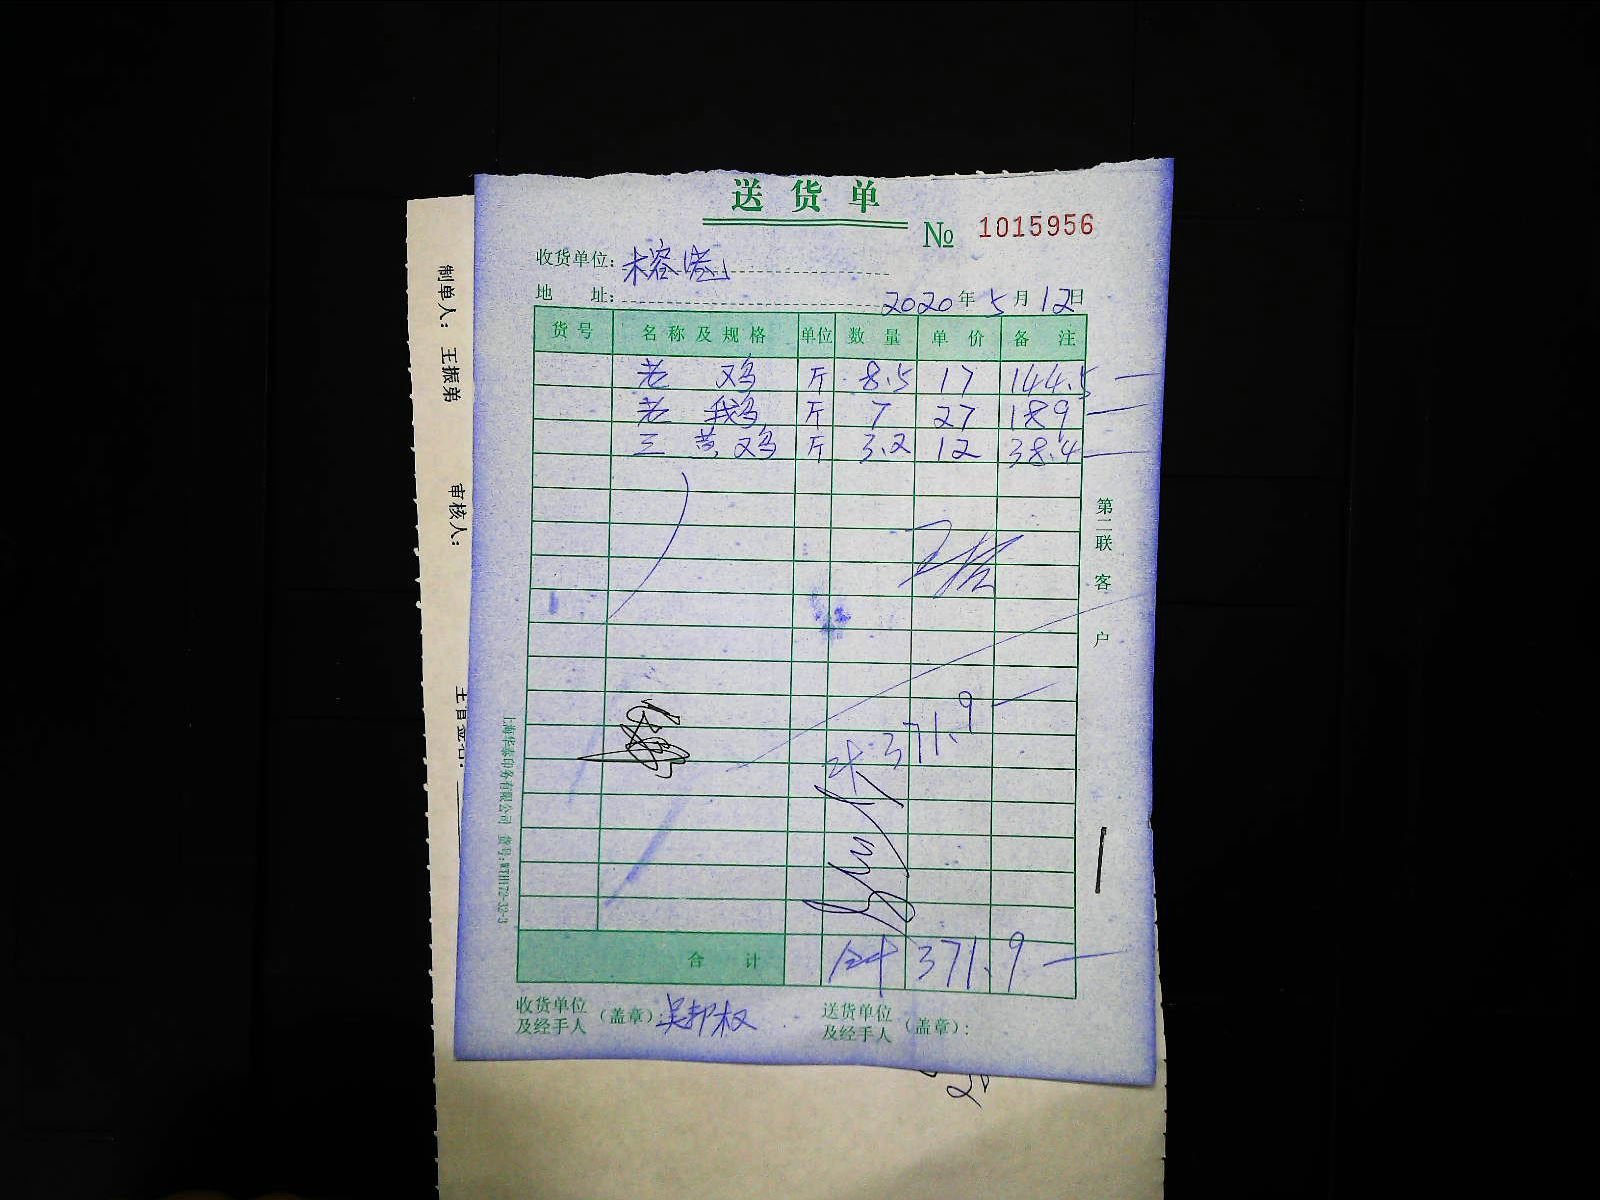 送货单
№ 1015956
收货单位:
地 址: 2020年5月12日
货号 名称及规格 单位 数量 单价 备注
老 鸡 斤 8.5 17 144.5
老 鹅 斤 7 27 189
三黄鸡 斤 3.2 12 38.4
371.9
合计 合计 371.9
收货单位及经手人(盖章): 吴邦权
送货单位及经手人(盖章):
第二联 客户
上海华泰印务有限公司 货号:WTH172-32-3
制单人: 王振弟
审核人: